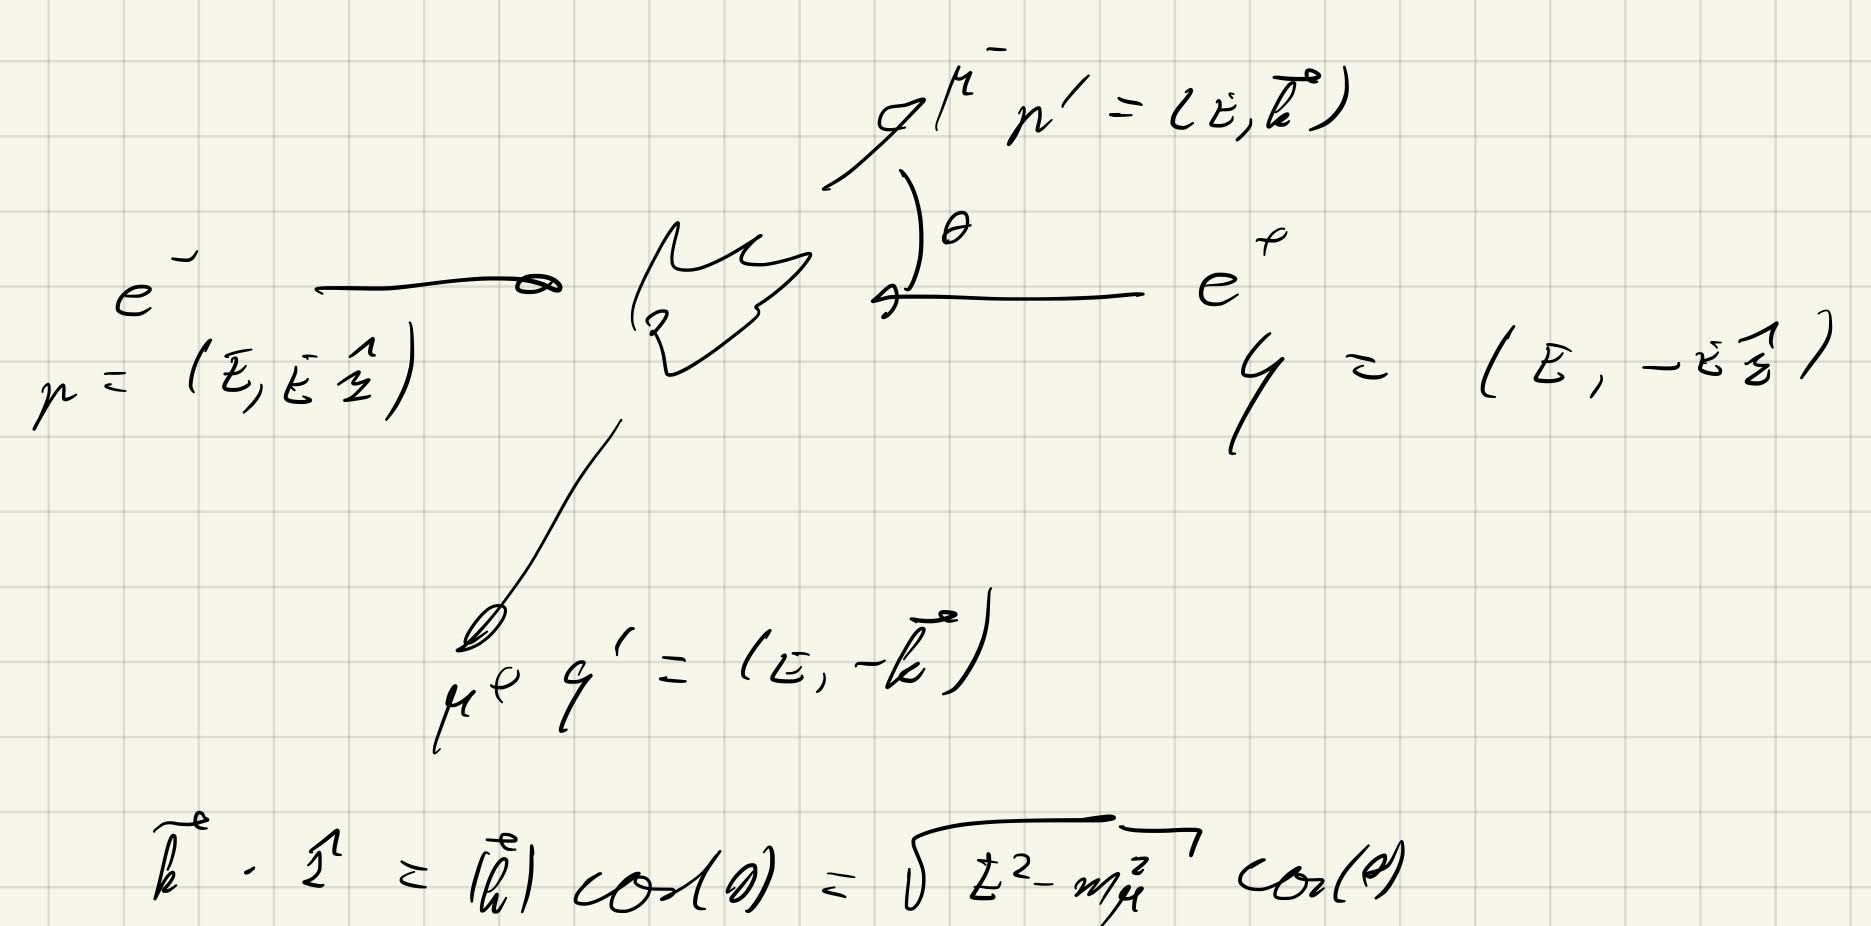 μ⁻ p' = (E, k⃗)
θ
e⁻ e⁺
p = (E, E ẑ) q = (E, -E ẑ)
μ⁺ q' = (E, -k⃗)
k⃗ · ẑ = |k⃗| cos(θ) = √(E² - m_μ²) cos(θ)